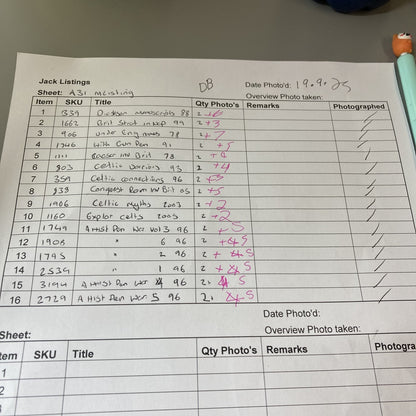 Jack Listings
Sheet: A31 MListing DB Date Photo'd: 19.9.25
Overview Photo taken:
Item SKU Title Qty Photo's Remarks Photographed
1 339 manuscripts 88 2 +6
2 1662 Brit Strat 99 2 +3
3 906 under Eng 78 2 +7
4 1746 With Gun Pen 91 2 +5
5 Brit 78 2
6 803 Celtic warriors 93 2 +4
7 359 Celtic connections 96 2
8 838 Conquest Rom Brit 05 2 +5
9 1906 Celtic myths 2003 2 +2
10 1160 Explor celts 2005 2 +2
11 1749 A Hist Pen War vol 3 96 2 + 5
12 1908 " 6 96 2 + 5
13 1745 " 2 96 2 + 5
14 2539 " 1 96 2 + 5
15 3194 A Hist Pen War 4 96 2 5
16 2729 A Hist Pen War 5 96 2 5
Date Photo'd:
Sheet: Overview Photo taken:
tem SKU Title Qty Photo's Remarks Photogra
1
2